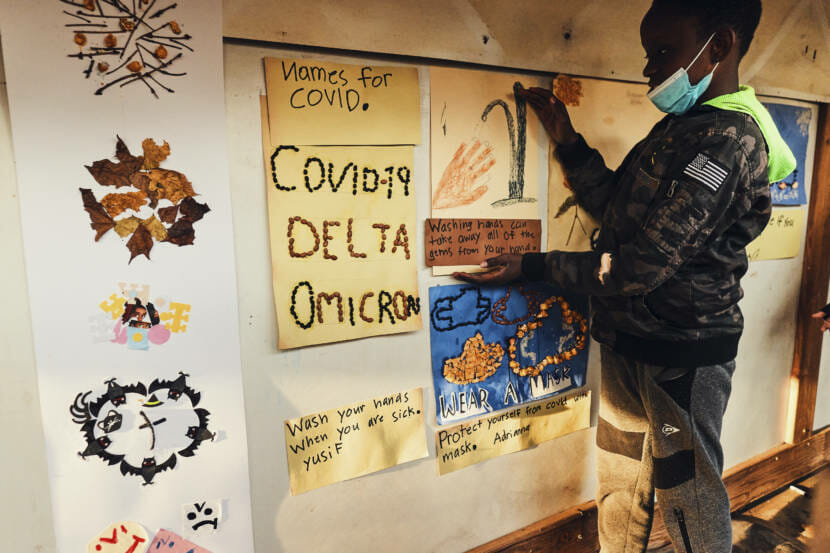 Names for
COVID.
COVID-19
DELTA
OMICRON
Washing hands can
take away all of the
gems from your hand.
WEAR A MASK
Wash your hands
when you are sick.
yusif
Protect yourself from covid with
mask. Adrianna
e If You
DUNLOP